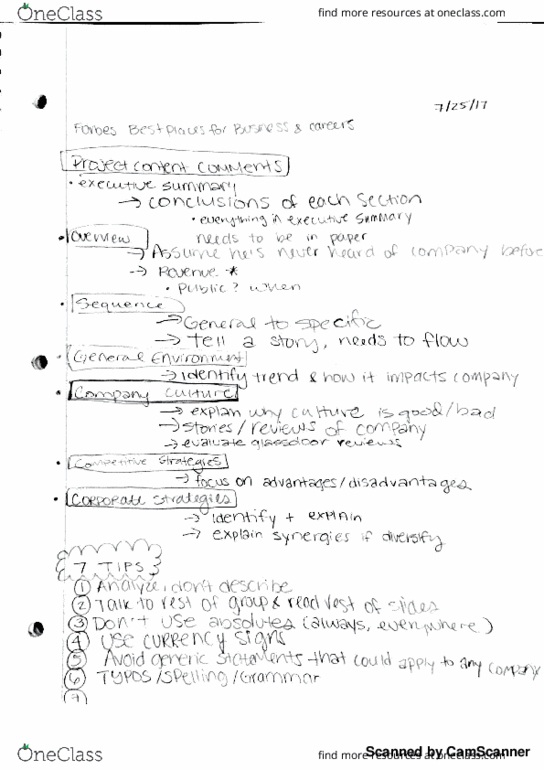 OneClass
find more resources at oneclass.com
7/25/17
Forbes Best Places for Business & careers
Project content comments
• executive summary
→ conclusions of each section
• everything in executive summary
needs to be in paper
• Overview
→ Assume he's never heard of company before
→ Revenue *
• Public? when
• Sequence
→ General to specific
→ tell a story, needs to flow
• General Environment
→ identify trend & how it impacts company
• Company Culture
→ explain why culture is good/bad
→ stories/reviews of company
→ evaluate glassdoor reviews
• Competitive Strategies
→ focus on advantages/disadvantages
• Corporate Strategies
→ identify + explain
→ explain synergies if diversify
7 TIPS
① Analyze, don't describe
② Talk to rest of group & read rest of slides
③ Don't use absolutes (always, everywhere)
④ Use currency signs
⑤ Avoid generic statements that could apply to any company
⑥ TYPOS/Spelling/Grammar
⑦
OneClass
find more resources at oneclass.com
Scanned by CamScanner